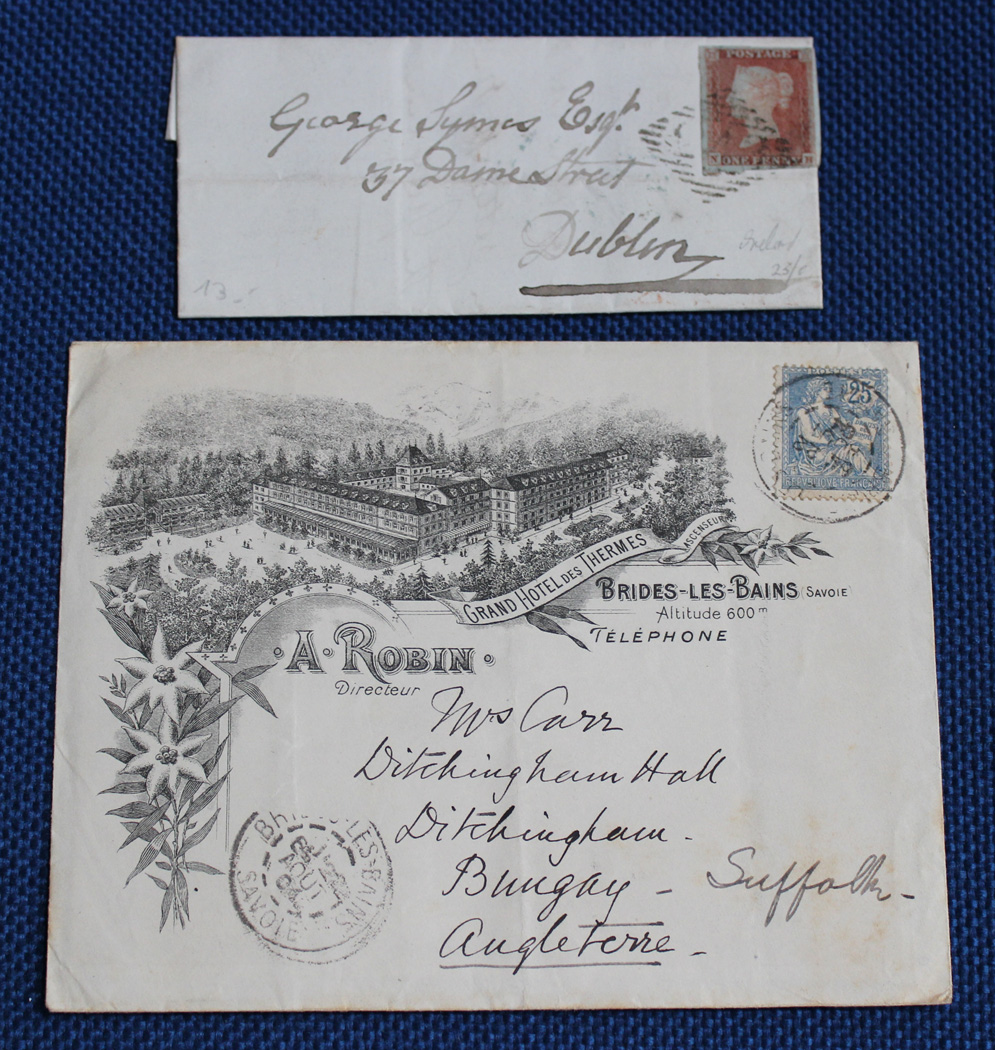 POSTAGE
ONE PENNY
George Symes Esqr.
37 Dame Street
Dublin
13
25
RÉPUBLIQUE FRANÇAISE
GRAND HOTEL DES THERMES
ASCENSEUR
BRIDES-LES-BAINS (SAVOIE
Altitude 600m
TÉLÉPHONE
A. ROBIN
Directeur
Mrs Carr
Ditchingham Hall
Ditchingham -
Bungay - Suffolk -
Angleterre -
BRIDES-LES-BAINS
AOUT
SAVOIE